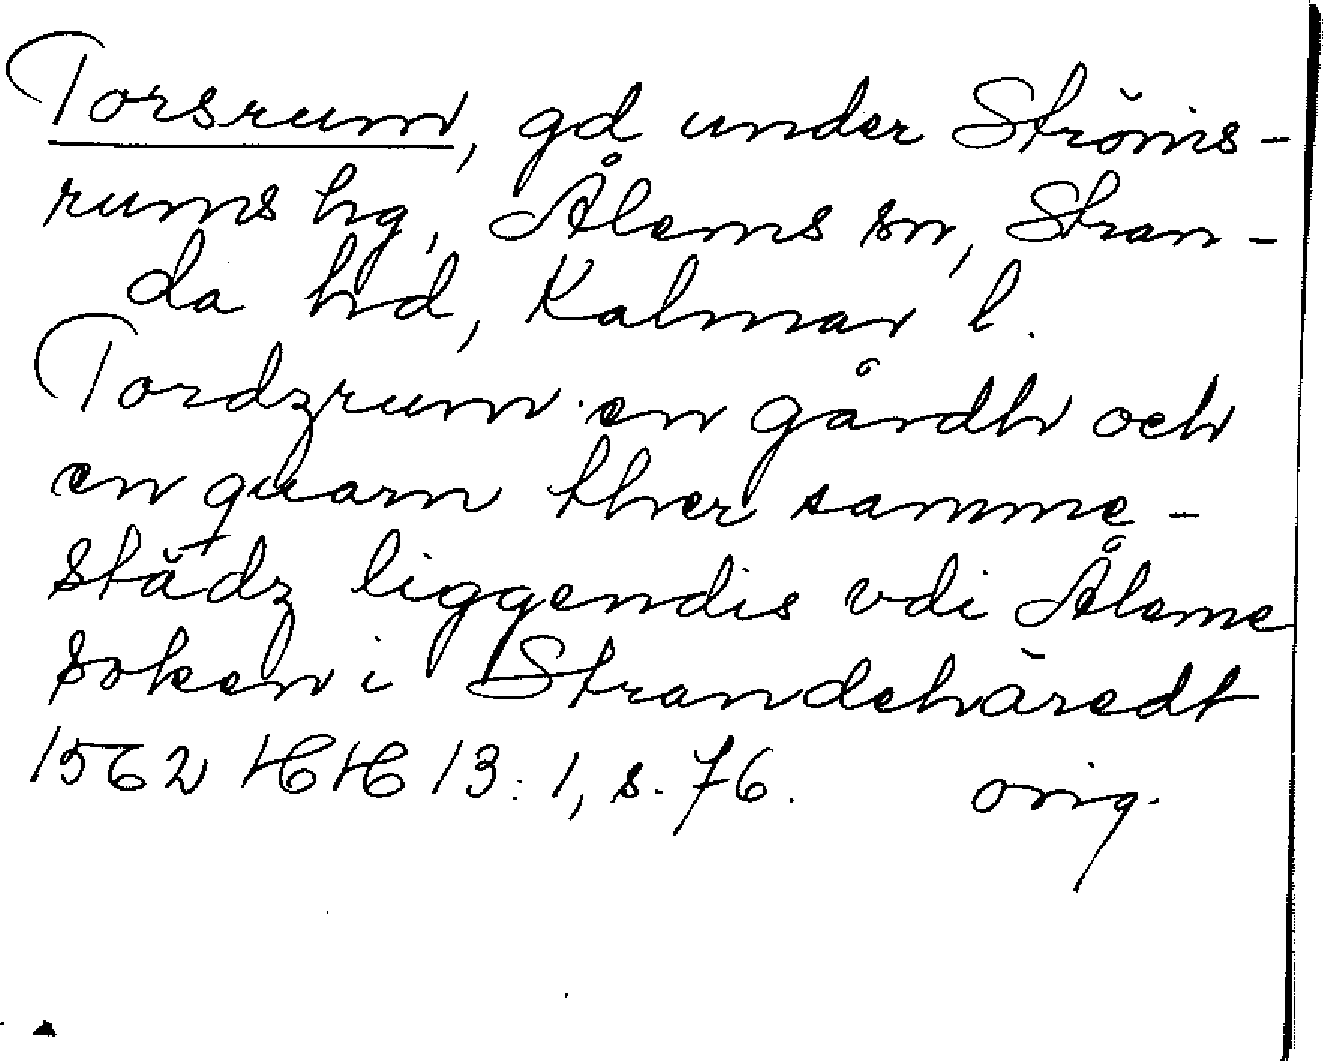 Torsrum, gd under Ströms-
rums hg, Ålems sn, Stran-
da hd, Kalmar l.
Tordzrum en gårdh och
en quarn ther samme-
städz liggendis vdi Åleme
soken i Strandehäredt
1562 HH 13:1, s. 76. orig.